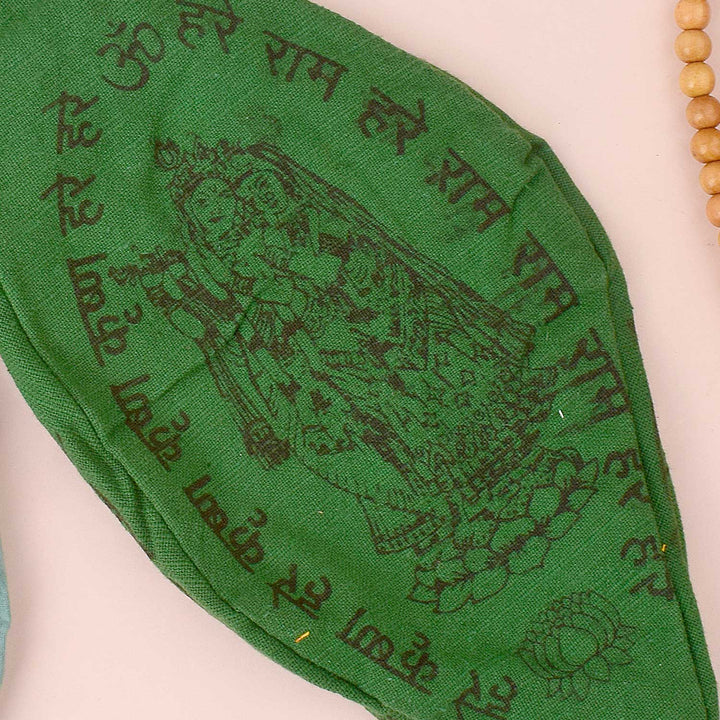 ॐ हरे राम हरे राम राम राम हरे हरे
हरे कृष्ण हरे कृष्ण कृष्ण कृष्ण हरे हरे